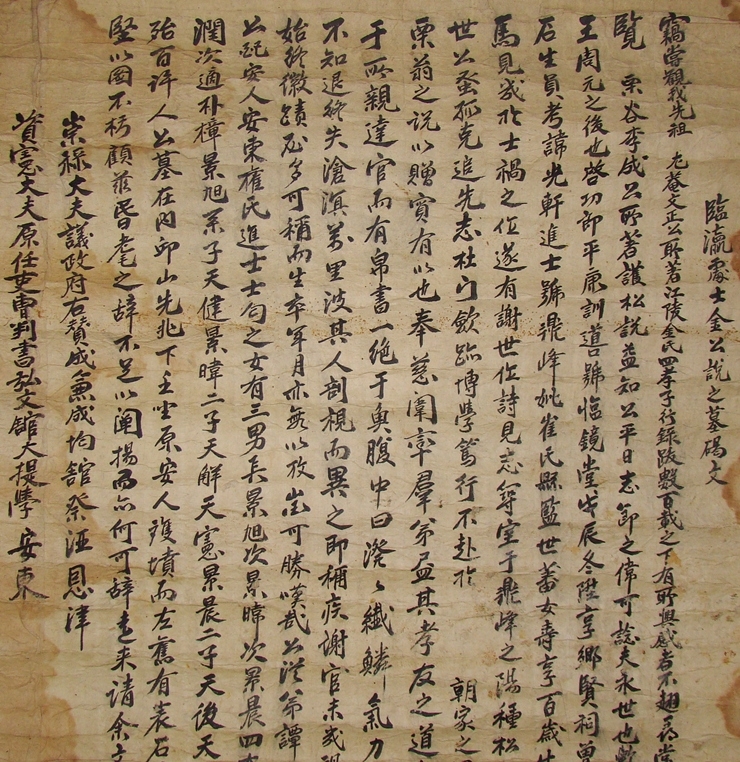 臨瀛處士金公說之墓碣文
竊嘗觀我先祖 尤菴文正公所著江陵金氏四孝子行錄跋數百載之下有所興感者不翅尋常
覽 栗谷李成公所著護松說益知公平日志節之偉可諗夫永世也
王周元之後也啓功郎平康訓導號臨鏡堂戊辰冬陞享鄉賢祠曾
后生員考諱光軒進士號鼎峰妣崔氏縣監世蕃女壽享百歲生
馬見幾於士禍之作遂有謝世作詩見志築室于鼎峰之陽種松
世公蚤孤克追先志杜門飮跡博學篤行不赴於 朝家之
栗翁之說以贈實有以也奉慈闈率羣弟益其孝友之道
于所親達官而有帛書一絶于魚腹中曰潑々纖鱗氣力
不知退終失滄溟萬里波其人剖視而異之卽稱疾謝官未幾
始終徽蹟必多可稱而生卒年月亦無以攷豈可勝嘆哉公從弟譚
公配安人安東權氏進士士勻之女有三男長景旭次景暐次景晨四
潤次適朴樟景旭系子天健景暐二子天解天憲景晨二子天後天
殆百許人公墓在內卯山先兆下壬坐原安人雙墳而左舊有表石
堅以圖不朽顧玆昏耄之辭不足以闡揚而亦何可辭遠來請余文
崇祿大夫議政府右贊成兼成均館祭酒恩津
資憲大夫原任吏曹判書弘文館大提學 安東